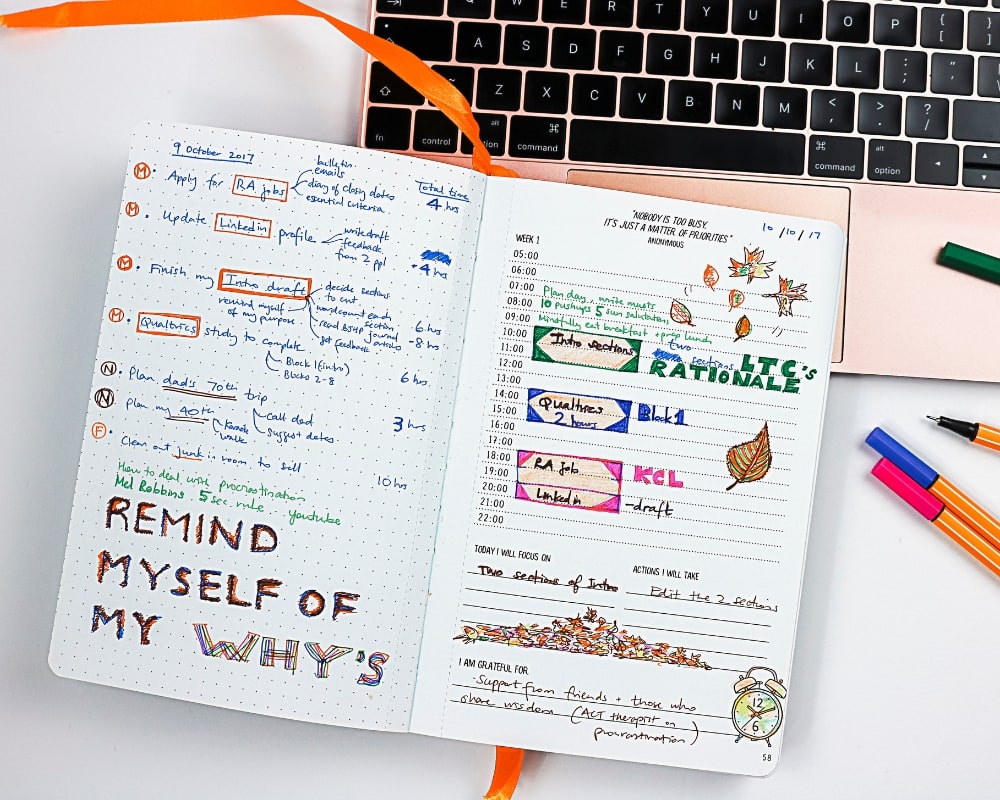 W E R T Y U I O P { [ } ]
A S D F G H J K L : ; " '
Z X C V B N M < , > . ? /
fn control alt option command command alt option
9 October 2017
Total time
M · Apply for RA jobs
bulletin
emails
diary of closing dates
essential criteria
4 hrs
M · Update Linkedin profile
write draft
feedback
from 2 ppl
4 hs
M · Finish my Intro draft
decide sections
to cut
wordcount each
section
read BJHP journal
articles
get feedback
remind myself
of my purpose
6 hrs
-8 hrs
M · Qualtrics study to complete
Block 1 (intro)
Blocks 2-8
6 hrs.
N · Plan dad's 70th trip
call dad
suggest dates
3 hrs
N · Plan my 40th
walk
F · Clean out junk in room to sell
10 hrs
How to deal with procrastination
Mel Robbins 5 sec rule - youtube
REMIND
MYSELF OF
MY WHY'S
"NOBODY IS TOO BUSY,
IT'S JUST A MATTER OF PRIORITIES"
ANONYMOUS
10/10/17
WEEK 1
05:00
06:00
07:00 Plan day, write musts
08:00 10 pushups 5 sun salutations
09:00 Mindfully eat breakfast + prep lunch
10:00 Intro sections two sections LTC's
11:00 RATIONALE
12:00
13:00
14:00 Qualtrics Block 1
15:00 2 hours
16:00
17:00
18:00 RA job KCL
19:00
20:00 Linkedin -draft
21:00
22:00
TODAY I WILL FOCUS ON
Two sections of Intro
ACTIONS I WILL TAKE
Edit the 2 sections
I AM GRATEFUL FOR
·Support from friends + those who
share wisdom (ACT therapist on
procrastination)
12
6
58